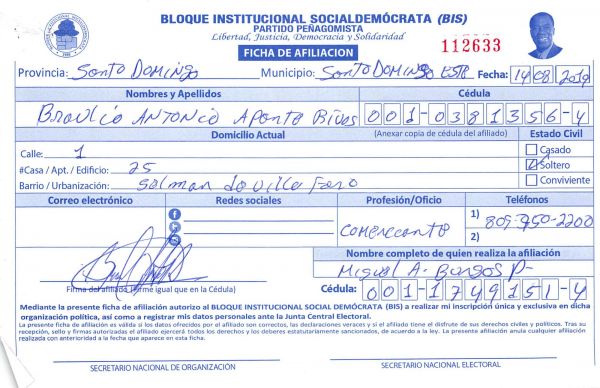 BLOQUE INSTITUCIONAL SOCIALDEMÓCRATA (BIS)
PARTIDO PEÑAGOMISTA
Libertad, Justicia, Democracia y Solidaridad
FICHA DE AFILIACION
112633
Provincia: Santo Domingo Municipio: Santo Domingo Este Fecha: 14/08/2019
Nombres y Apellidos Cédula
Braulio Antonio Aponte Rivas 001-0381356-4
Domicilio Actual (Anexar copia de cédula del afiliado) Estado Civil
Calle: 1 Casado
#Casa / Apt. / Edificio: 25 Soltero
Barrio / Urbanización: Salman la Villa Faro Conviviente
Correo electrónico Redes sociales Profesión/Oficio Teléfonos
Comerciante 1) 809-750-2200
2)
Nombre completo de quien realiza la afiliación
Miguel A. Burgos P-
Firma del afiliado (firme igual que en la Cédula) Cédula: 001-1749151-4
Mediante la presente ficha de afiliación autorizo al BLOQUE INSTITUCIONAL SOCIAL DEMÓCRATA (BIS) a realizar mi inscripción única y exclusiva en dicha
organización política, así como a registrar mis datos personales ante la Junta Central Electoral.
La presente ficha de afiliación es válida si los datos ofrecidos por el afiliado son correctos, las declaraciones veraces y si el afiliado tiene el disfrute de sus derechos civiles y políticos. Tras su
recepción, sello y firmas autorizadas el afiliado ejercerá todos los derechos y los deberes estatutariamente sancionados, de acuerdo a la ley. La presente afiliación anula cualquier afiliación
realizada con anterioridad a la fecha que aparece en esta ficha.
SECRETARIO NACIONAL DE ORGANIZACIÓN SECRETARIO NACIONAL ELECTORAL